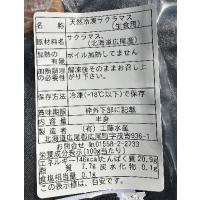 名 称 天然冷凍サクラマス
(生食用)
原材料名 サクラマス
(北海道広尾産)
加熱の有無 ボイル加熱してません
加熱調理の必要性 解凍後そのままお召し上がりください。
保存方法 冷凍(-18℃以下)で保存
賞味期限 枠外下部に記載
内容量 半身
製造者 (有)工藤水産
北海道広尾郡広尾町字茂寄936-1
お問い合せ ℡01558-2-2733
栄養成分表示(100g当たり)
エネルギー 146kcal たんぱく質 20.9g
脂質 7.7g 炭水化物 0.1g
食塩相当量 0.1g
この表示値は、目安です。